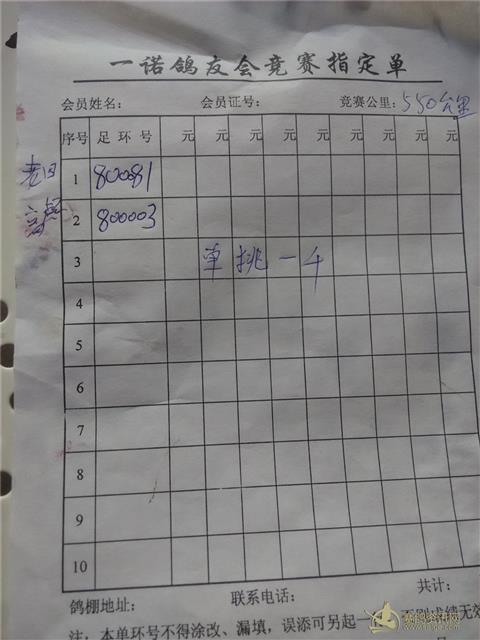 一诺鸽友会竞赛指定单
会员姓名： 会员证号： 竞赛公里：550公里
序号 足环号 元 元 元 元 元 元 元
1 80081
2 800003
3 单挑一千
4
5
6
7
8
9
10
鸽棚地址： 联系电话： 共计：
注：本单环号不得涂改、漏填，误添可另起一